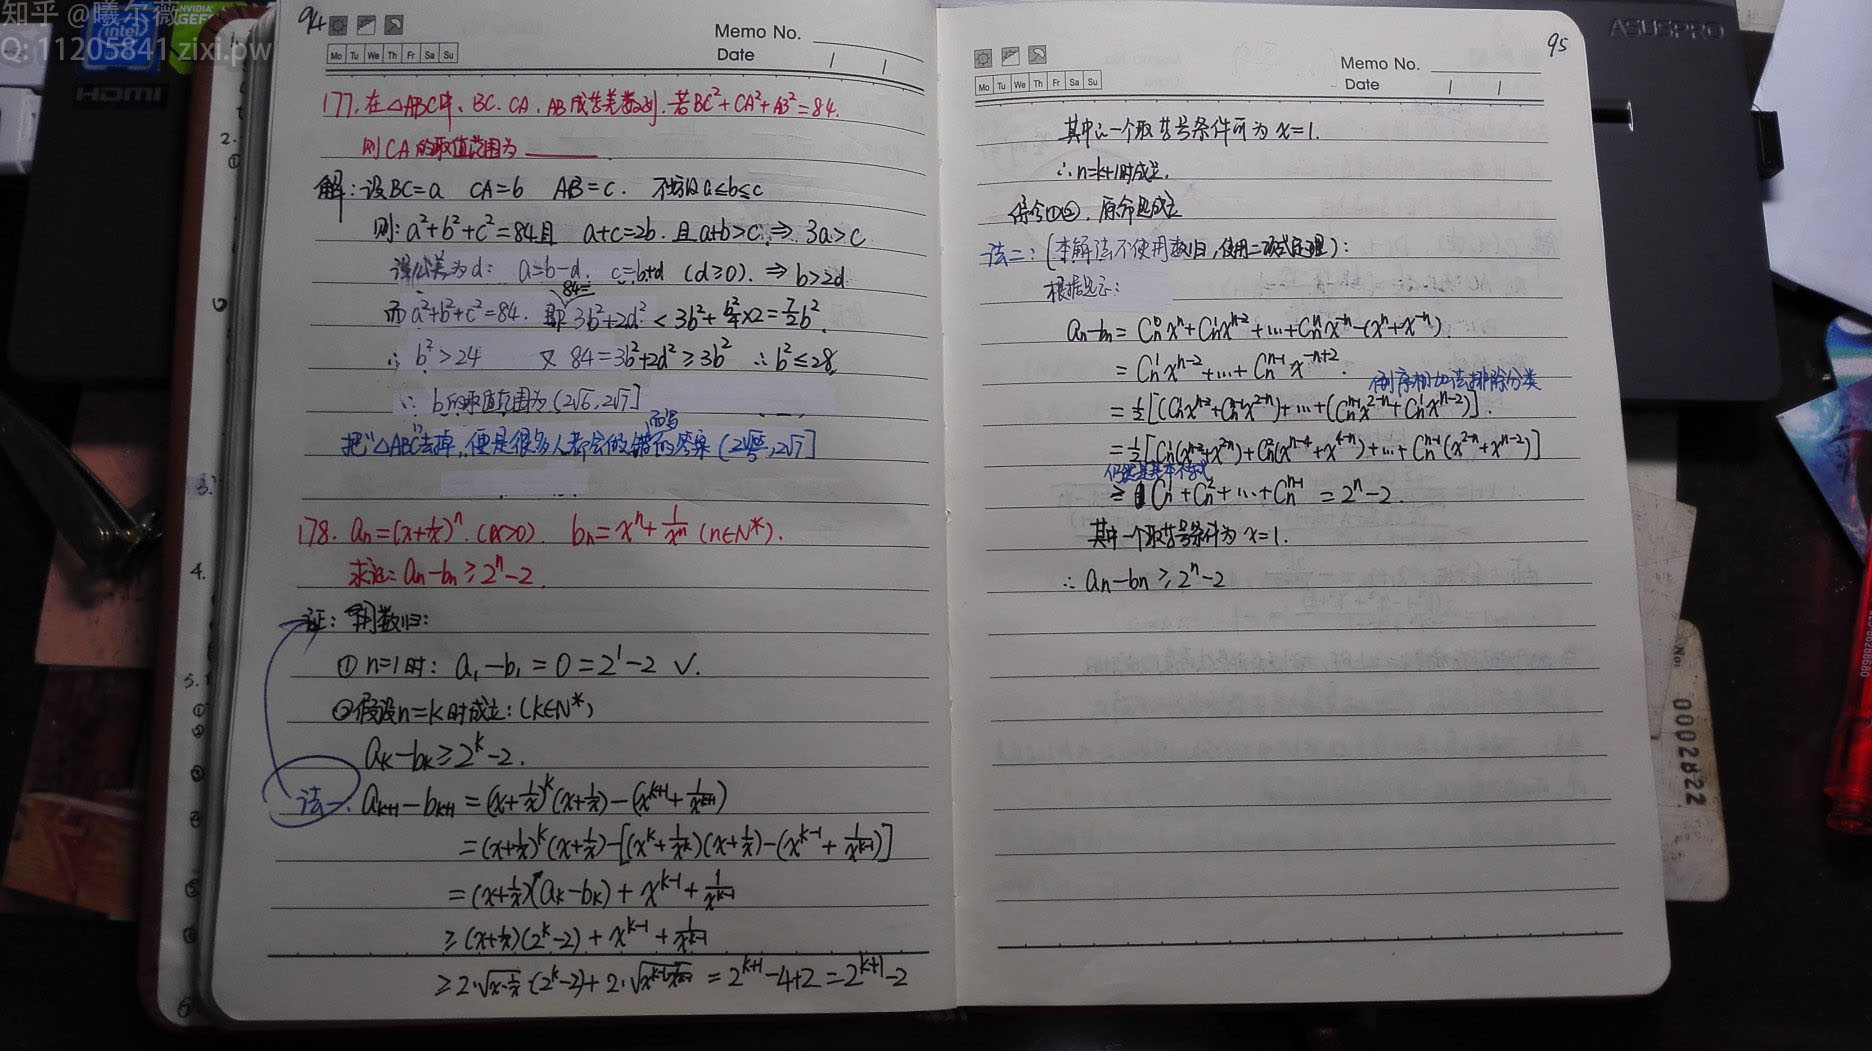 知乎 @曦尔薇
Q: 11205841.zixi.pw
intel
NVIDIA
HDMI
ASUSPRO
94
Mo Tu We Th Fr Sa Su
Memo No.
Date
177. 在△ABC中、BC、CA、AB成等差数列. 若BC²+CA²+AB²=84.
则CA的取值范围为 ______ .
解: 设BC=a CA=b AB=c. 不妨设a≤b≤c
则: a²+b²+c²=84且 a+c=2b. 且a+b>c. ⇒ 3a>c
设公差为d: a=b-d. c=b+d (d≥0). ⇒ b>2d
84=
而a²+b²+c²=84. 即 3b²+2d² < 3b²+b²/4×2=7/2b².
∴ b²>24 又 84=3b²+2d²≥3b² ∴b²≤28
∴ b的取值范围为(2√6, 2√7]
把"△ABC"去掉, 便是很多人都会做错而写的答案 (2√, 2√7]
178. an=(x+1/x)ⁿ. (x>0) bn=xⁿ+1/xⁿ (n∈N*).
求证: an-bn≥2ⁿ-2.
证: 用数归:
① n=1时: a₁-b₁=0=2¹-2 ✓.
②假设n=k时成立: (k∈N*)
ak-bk≥2ᵏ-2.
法一. ak+1-bk+1=(x+1/x)ᵏ(x+1/x)-(xᵏ⁺¹+1/xᵏ⁺¹)
=(x+1/x)ᵏ(x+1/x)-[(xᵏ+1/xᵏ)(x+1/x)-(xᵏ⁻¹+1/xᵏ⁻¹)]
=(x+1/x)(ak-bk)+xᵏ⁻¹+1/xᵏ⁻¹
≥(x+1/x)(2ᵏ-2)+xᵏ⁻¹+1/xᵏ⁻¹
≥2·√x·1/x·(2ᵏ-2)+2·√xᵏ⁻¹·1/xᵏ⁻¹=2ᵏ⁺¹-4+2=2ᵏ⁺¹-2
95
Mo Tu We Th Fr Sa Su
Memo No.
Date
其中一个取等号条件可为x=1.
∴n=k+1时成立.
综合①②, 原命题成立
法二: (本解法不使用数归, 使用二项式定理):
根据题意:
an-bn=Cn⁰xⁿ+Cn¹xⁿ⁻²+…+Cnⁿx⁻ⁿ-(xⁿ+x⁻ⁿ).
=Cn¹xⁿ⁻²+…+Cnⁿ⁻¹x⁻ⁿ⁺².
倒序相加法排除分类
=½[(Cn¹xⁿ⁻²+Cnⁿ⁻¹x²⁻ⁿ)+…+(Cnⁿ⁻¹x²⁻ⁿ+Cn¹xⁿ⁻²)].
=½[Cn¹(xⁿ⁻²+x²⁻ⁿ)+Cn²(xⁿ⁻⁴+x⁴⁻ⁿ)+…+Cnⁿ⁻¹(x²⁻ⁿ+xⁿ⁻²)]
仍然是基本不等式
≥Cn¹+Cn²+…+Cnⁿ⁻¹=2ⁿ-2.
其中一个取等号条件为x=1.
∴an-bn≥2ⁿ-2
0002822